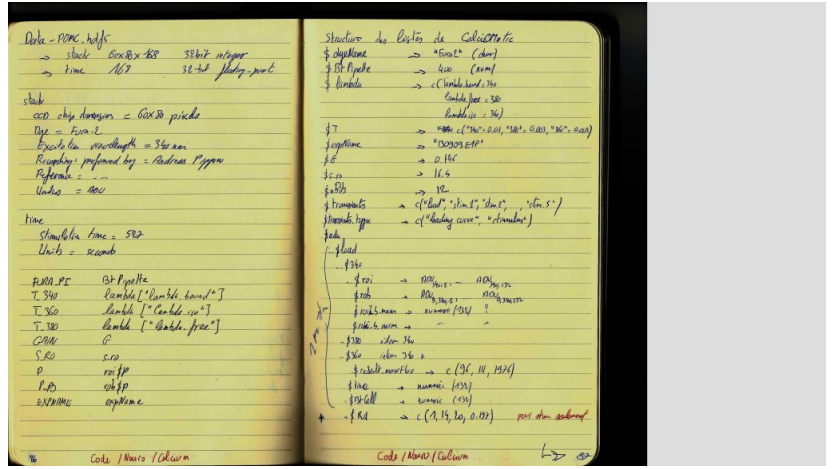 Data - POMC.hdf5
→ stack 60x80x168 32bit integer
→ time 168 32-bit floating-point
stack
CCD chip dimensions = 60x80 pixels
Dye = Fura-2
Excitation wavelength = 340 nm
Recordings performed by = Andreas Pippow
Reference = ...
Units = ADU
time
Stimulation time = 527
Units = seconds
FURA_PI Bt Pipette
T_340 lambda["lambda.bound"]
T_360 lambda ["lambda.iso"]
T_380 lambda ["lambda.free"]
GAIN G
S_RO s.ro
P roi$P
P_B rob$P
EXPNAME expName
86 Code / Neuro / Calcium
Structure des listes de CalciOMatic
$ dyeName → "Fura2" (char)
$ Bt Pipette → 400 (num)
$ lambda → c(lambda.bound = 340
lambda.free = 380
lambda.iso = 360)
$ T → c("340"= 0.01, "380"= 0.003, "360"= 0.003)
$ expName → "130909E1P"
$ G → 0.146
$ s.ro → 16.4
→ 12
$ transients → c("load", "stim.1", "stim.2", ..., "stim.5")
$ transients.type → c("loading curve", "stimulus")
$load
$340
$ roi → ADU ... ADU
$ rob → ADU ... ADU
→ numeric (132) ?
$380 idem 340
$360 idem 340
→ c (96, 111, 1976)
$ time → numeric (132)
$ BtCell → numeric (132)
* $ Rd → c (1, 14, 20, 0.197) pour stim seulement
Code / Neuro / Calcium 87